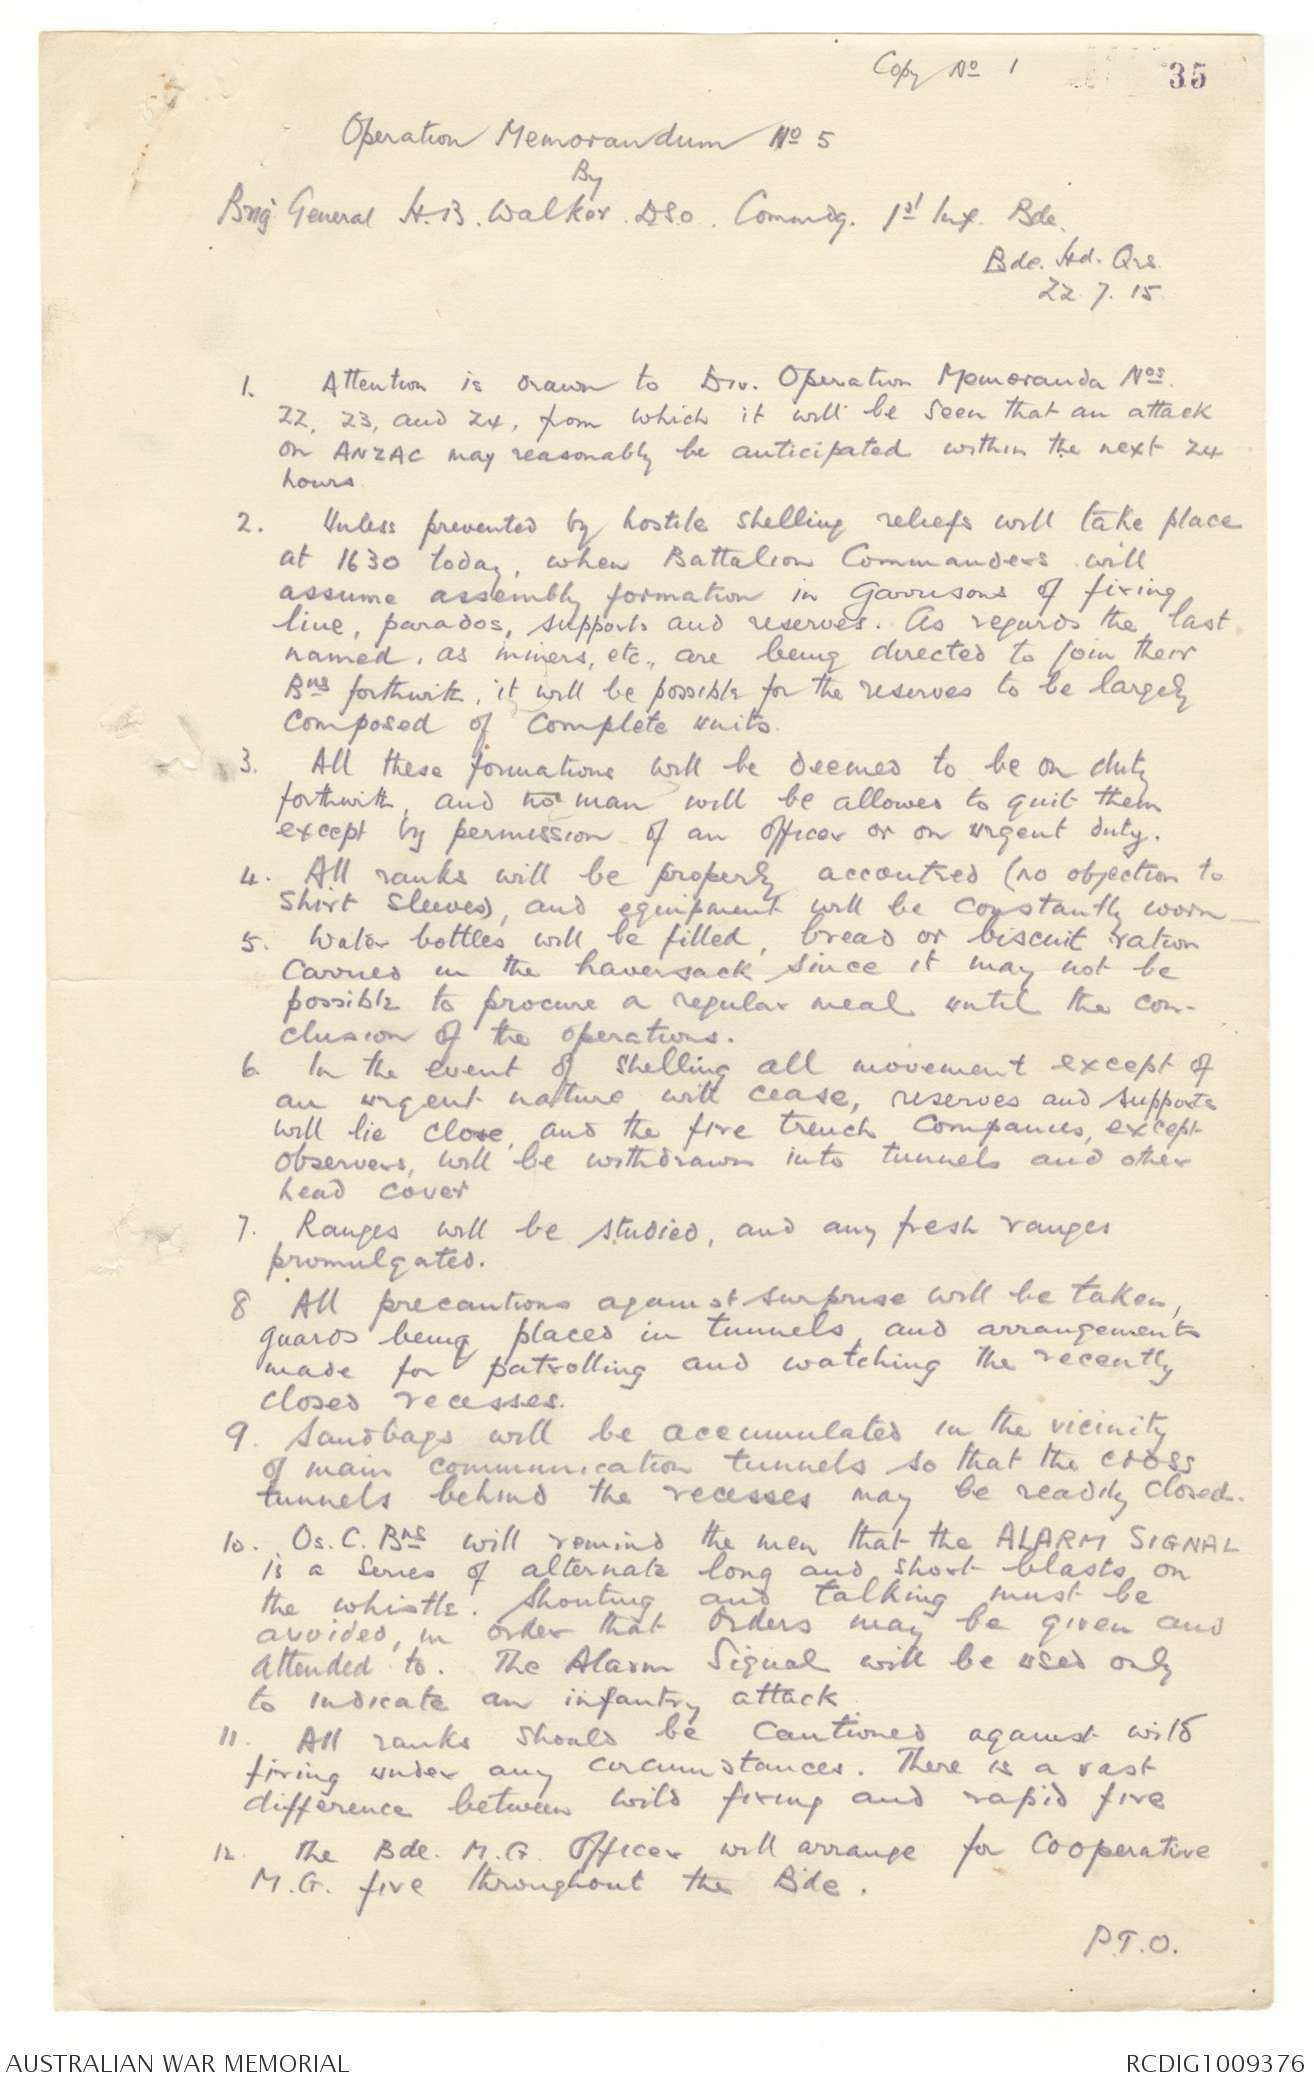 Copy No 1
35
Operation Memorandum No 5
By
Brig General H.B. Walker D.S.O. Commdg. 1st Inf. Bde.
Bde. Hd. Qrs.
22.7.15
1. Attention is drawn to Div. Operation Memoranda Nos.
22, 23, and 24, from which it will be seen that an attack
on ANZAC may reasonably be anticipated within the next 24
hours.
2. Unless prevented by hostile shelling reliefs will take place
at 1630 today, when Battalion Commanders will
assume assembly formation in garrisons of firing
line, parados, supports and reserves. As regards the last
named, as miners, etc., are being directed to join their
Bns forthwith, it will be possible for the reserves to be largely
composed of complete units.
3. All these formations will be deemed to be on duty
forthwith, and no man will be allowed to quit them
except by permission of an officer or on urgent duty.
4. All ranks will be properly accoutred (no objection to
shirt sleeves), and equipment will be constantly worn -
5. Water bottles will be filled, bread or biscuit ration
carried in the haversack since it may not be
possible to procure a regular meal until the con-
clusion of the operations.
6. In the event of shelling all movement except of
an urgent nature will cease, reserves and supports
will lie close, and the fire trench Companies, except
observers, will be withdrawn into tunnels and other
head cover
7. Ranges will be studied, and any fresh ranges
promulgated.
8 All precautions against surprise will be taken,
guards being placed in tunnels, and arrangements
made for patrolling and watching the recently
closed recesses.
9. Sandbags will be accumulated in the vicinity
of main communication tunnels so that the cross
tunnels behind the recesses may be readily closed.
10. Os. C. Bns will remind the men that the ALARM SIGNAL
is a series of alternate long and short blasts on
the whistle. Shouting and talking must be
avoided, in order that orders may be given and
attended to. The Alarm Signal will be used only
to indicate an infantry attack
11. All ranks should be cautioned against wild
firing under any circumstances. There is a vast
difference between wild firing and rapid fire
12. The Bde. M.G. Officer will arrange for cooperative
M.G. fire throughout the Bde.
P.T.O.
AUSTRALIAN WAR MEMORIAL
RCDIG1009376